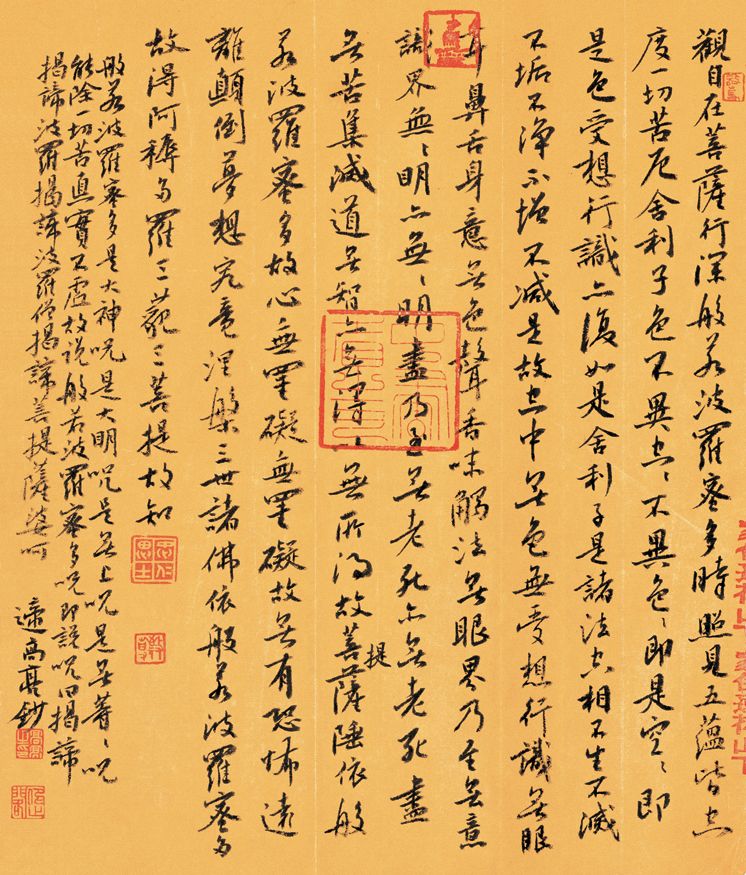 觀自在菩薩行深般若波羅蜜多時照見五蘊皆空
度一切苦厄舍利子色不異空〻不異色〻即是空〻即
是色受想行識亦復如是舍利子是諸法空相不生不滅
不垢不淨不增不減是故空中無色無受想行識無眼
耳鼻舌身意無色聲香味觸法無眼界乃至無意
識界無〻明亦無〻明盡乃至無老死亦無老死盡
無苦集滅道無智亦無得以無所得故菩提薩埵依般
若波羅蜜多故心無罣礙無罣礙故無有恐怖遠
離顛倒夢想究竟涅槃三世諸佛依般若波羅蜜多
故得阿耨多羅三藐三菩提故知
般若波羅蜜多是大神咒是大明咒是無上咒是無等〻咒
能除一切苦真實不虛故說般若波羅蜜多咒即說咒曰揭諦
揭諦波羅揭諦波羅僧揭諦菩提薩婆訶
高 鈔